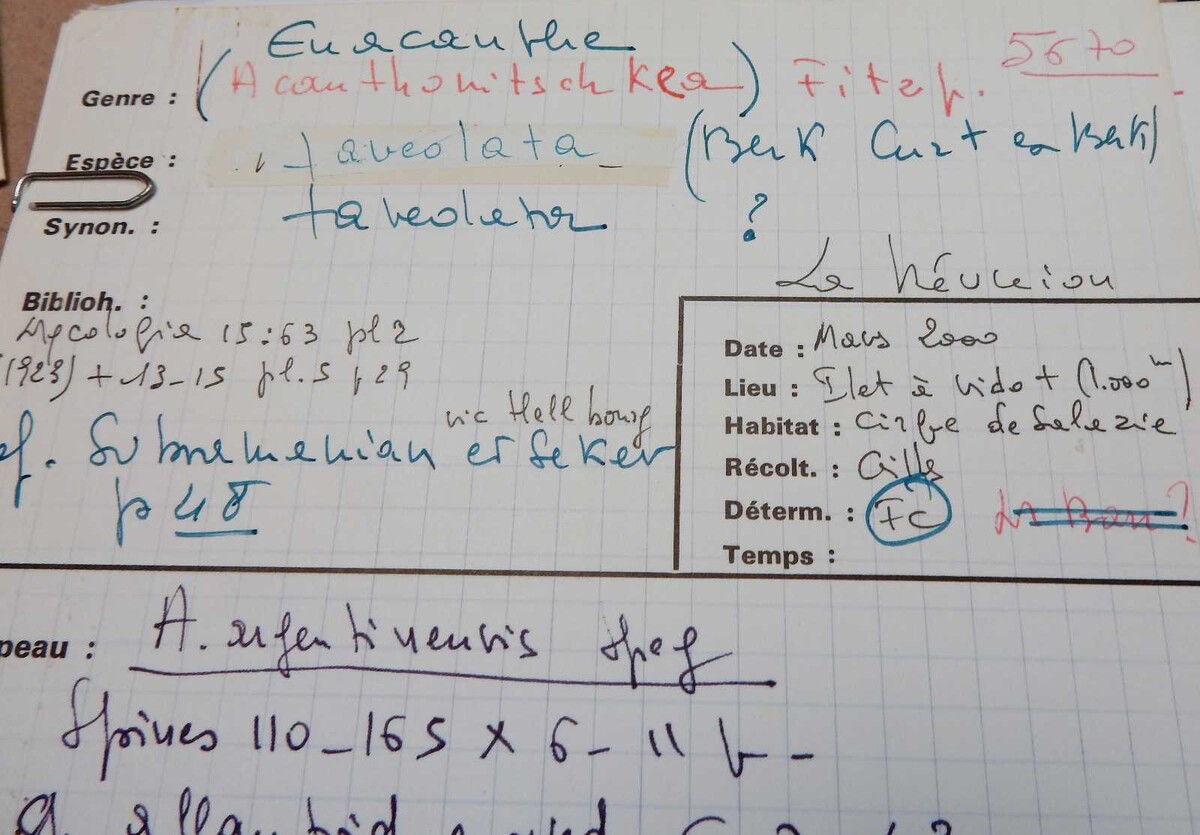 Enacanthe
5670
Genre : (Acanthonitschkea) Fitzp.
Espèce : faveolata (Berk Curt en Berk)
Synon. : faveolata ?
La Réunion
Biblioh. :
Mycologia 15:63 pl 2
(1923) + 13-15 pl.5 p 29
vic Hell bourg
Subramanian et Seker
p 48
Date : Mars 2000
Lieu : Ilet à Vido + (1.000 m)
Habitat : Cirque de Salazie
Récolt. : Gilles
Déterm. : FC
Temps :
peau : A. argentinensis Speg
Spines 110-165 x 6-11 µ -